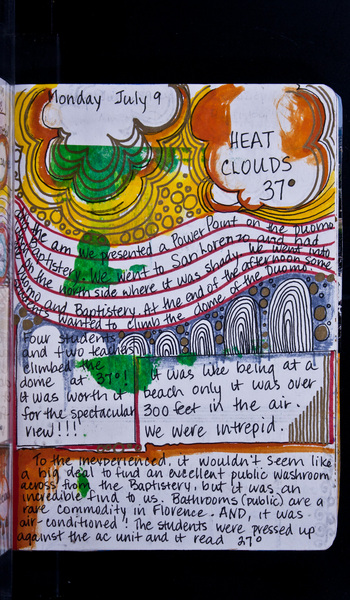 Monday July 9
HEAT
CLOUDS
37°
In the am we presented a Power Point on the Duomo
Baptistery. We went to San Lorenzo and had
on the north side where it was shady. We went into
Duomo and Baptistery. At the end of the afternoon some
students wanted to climb the dome of the Duomo.
Four students
and two teachers
climbed the
dome at 37°!
it was worth it
for the spectacular
view!!!!
it was like being at a
beach only it was over
300 feet in the air.
We were intrepid.
To the inexperienced, it wouldn't seem like
a big deal to find an excellent public washroom
across from the Baptistery, but it was an
incredible find to us. Bathrooms (public) are a
rare commodity in Florence. AND, it was
air-conditioned! The students were pressed up
against the ac unit and it read 27°